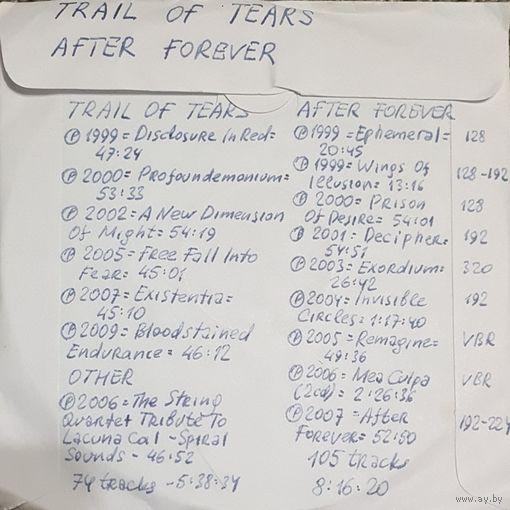 TRAIL OF TEARS
AFTER FOREVER
TRAIL OF TEARS
Ⓟ 1999 = Disclosure In Red =
47:24
Ⓟ 2000 = Profoundemonium =
53:33
Ⓟ 2002 = A New Dimension
Of Might = 54:19
Ⓟ 2005 = Free Fall Into
Fear = 45:01
Ⓟ 2007 = Existentia =
45:10
Ⓟ 2009 = Bloodstained
Endurance = 46:12
OTHER
Ⓟ 2006 = The String
Quartet Tribute To
Lacuna Coil - Spiral
Sounds - 46:52
74 tracks - 5:38:34
AFTER FOREVER
Ⓟ 1999 = Ephemeral = 128
20:45
Ⓟ 1999 = Wings Of 128-192
Illusion = 13:16
Ⓟ 2000 = Prison 128
Of Desire = 54:01
Ⓟ 2001 = Decipher = 192
54:51
Ⓟ 2003 = Exordium = 320
26:42
Ⓟ 2004 = Invisible 192
Circles = 1:17:40
Ⓟ 2005 = Remagine = VBR
49:36
Ⓟ 2006 = Mea Culpa VBR
(2cd) = 2:26:36
Ⓟ 2007 = After 192-224
Forever = 52:50
105 tracks
8:16:20
www.ay.by